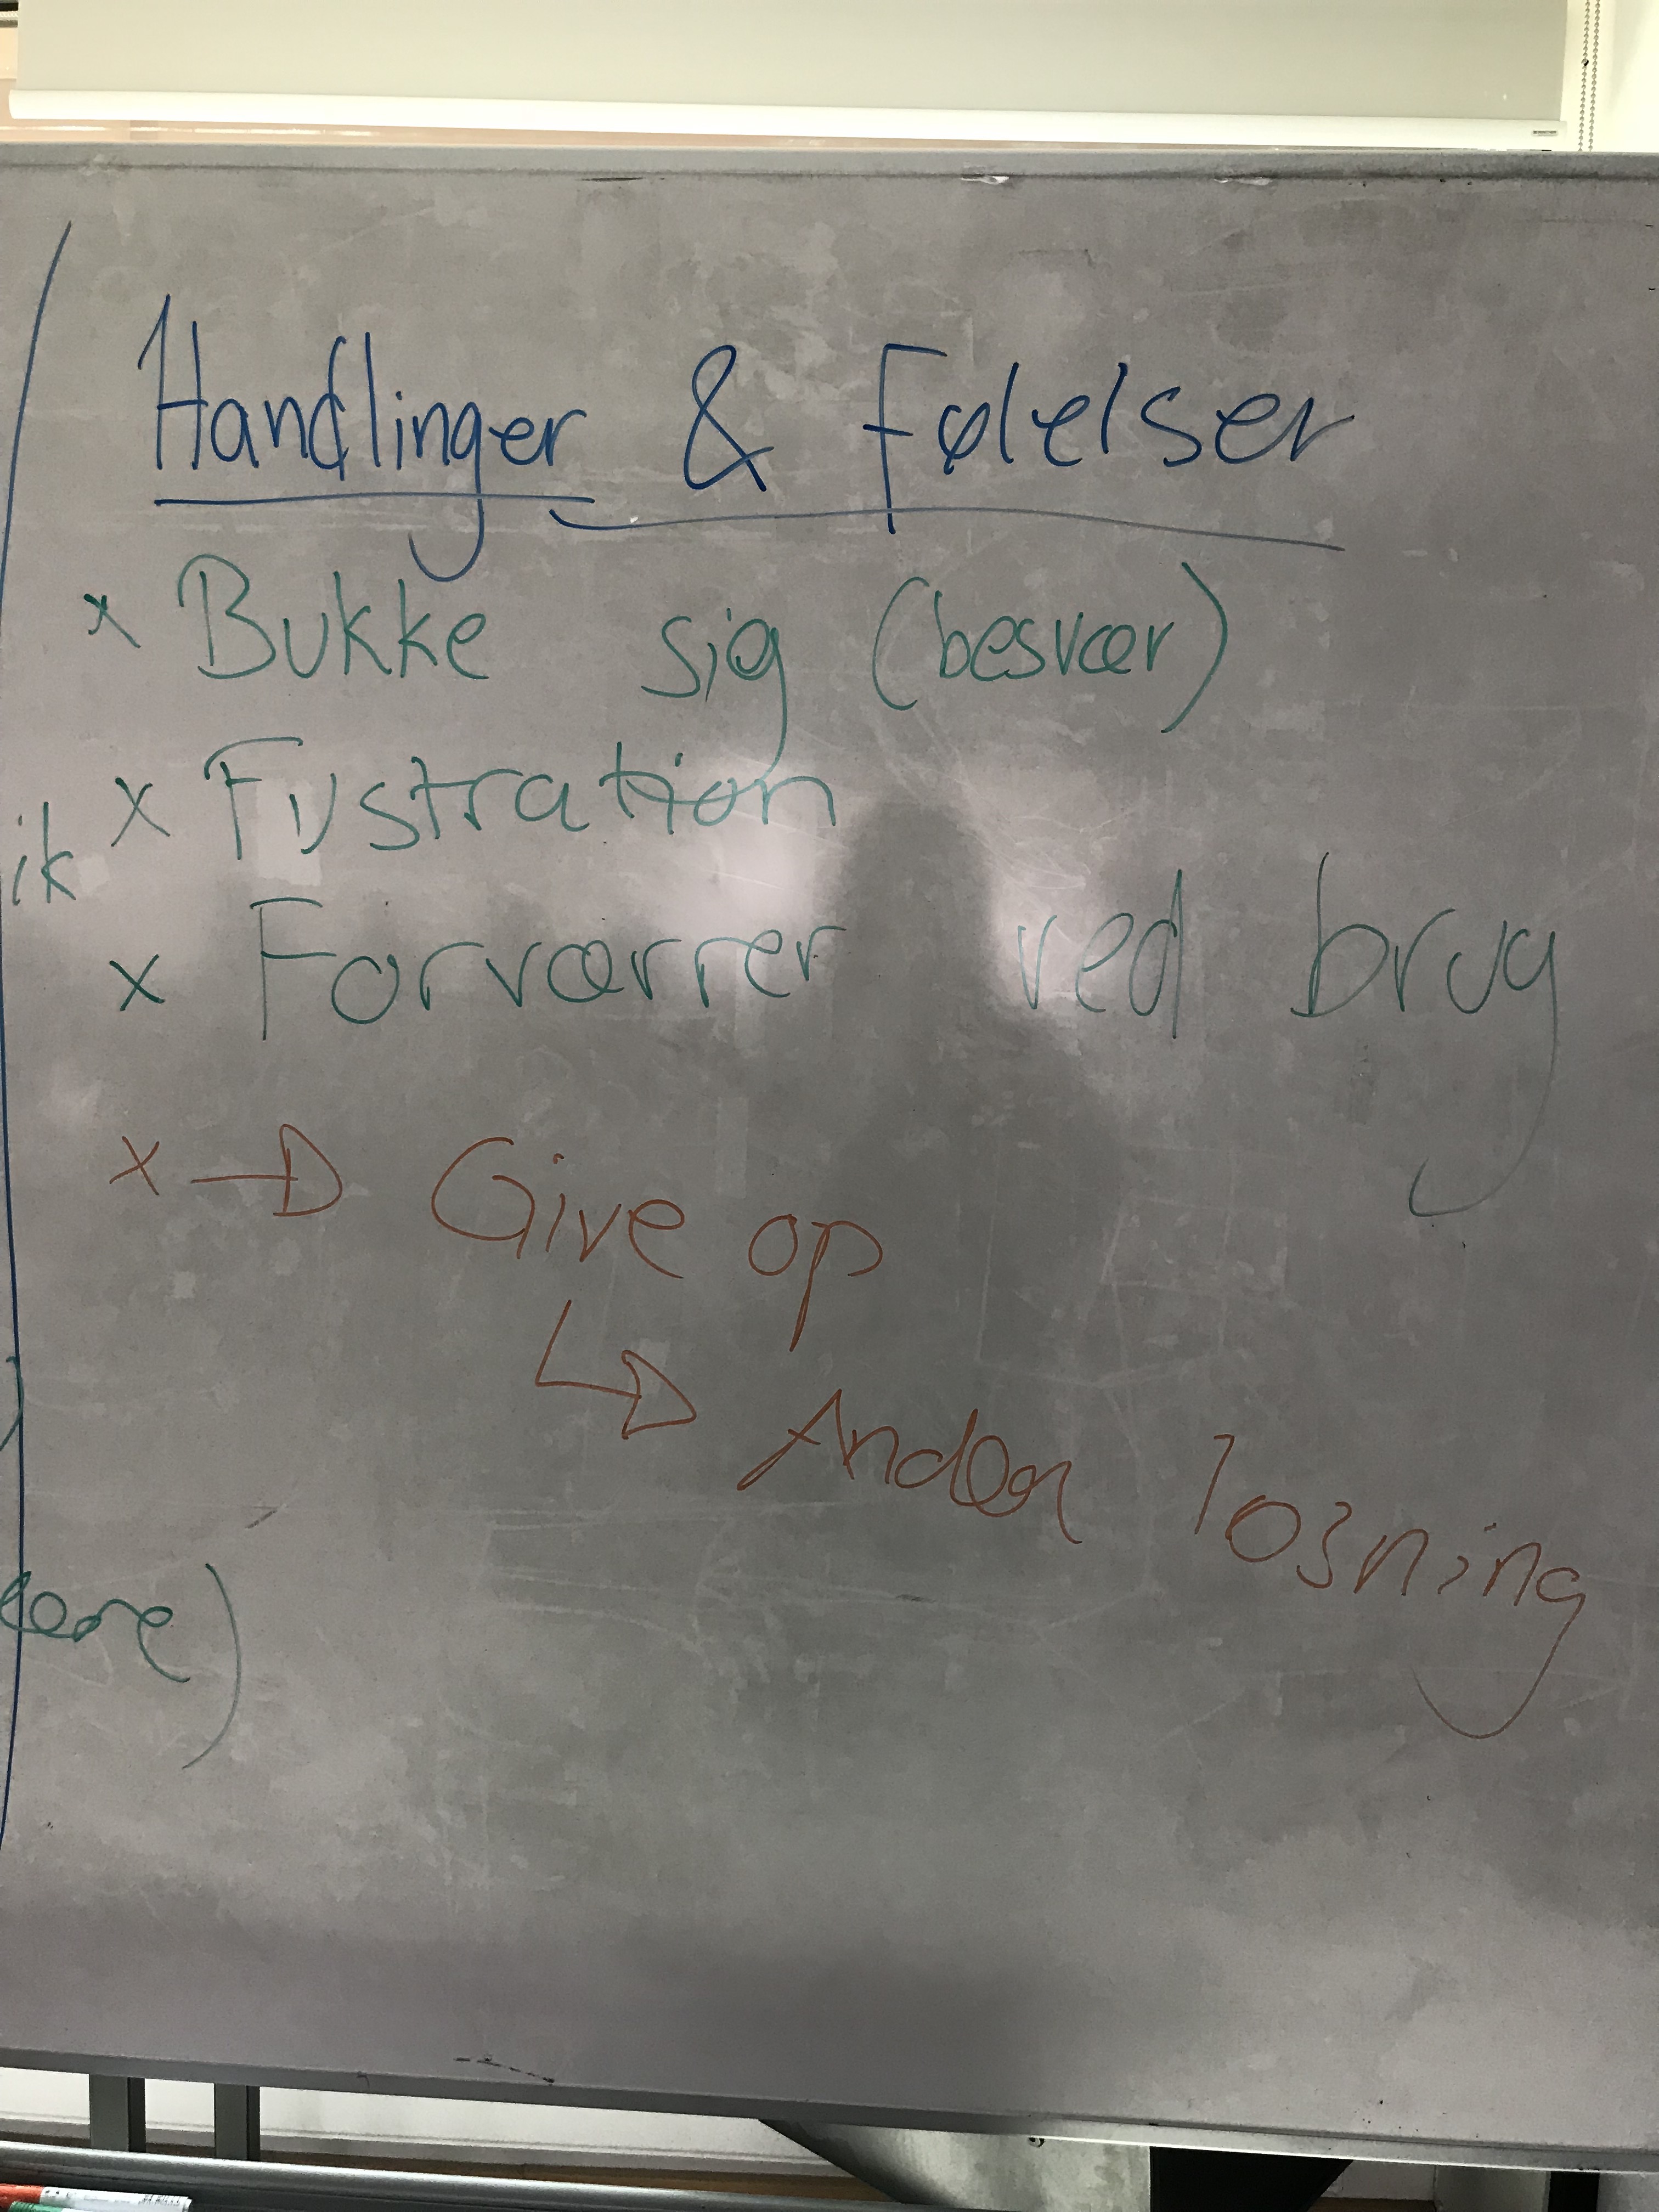 Handlinger & Følelser
x Bukke sig (besvær)
x Fustration
ik
x Forværrer ved brug
x → Give op
↳ Anden losning